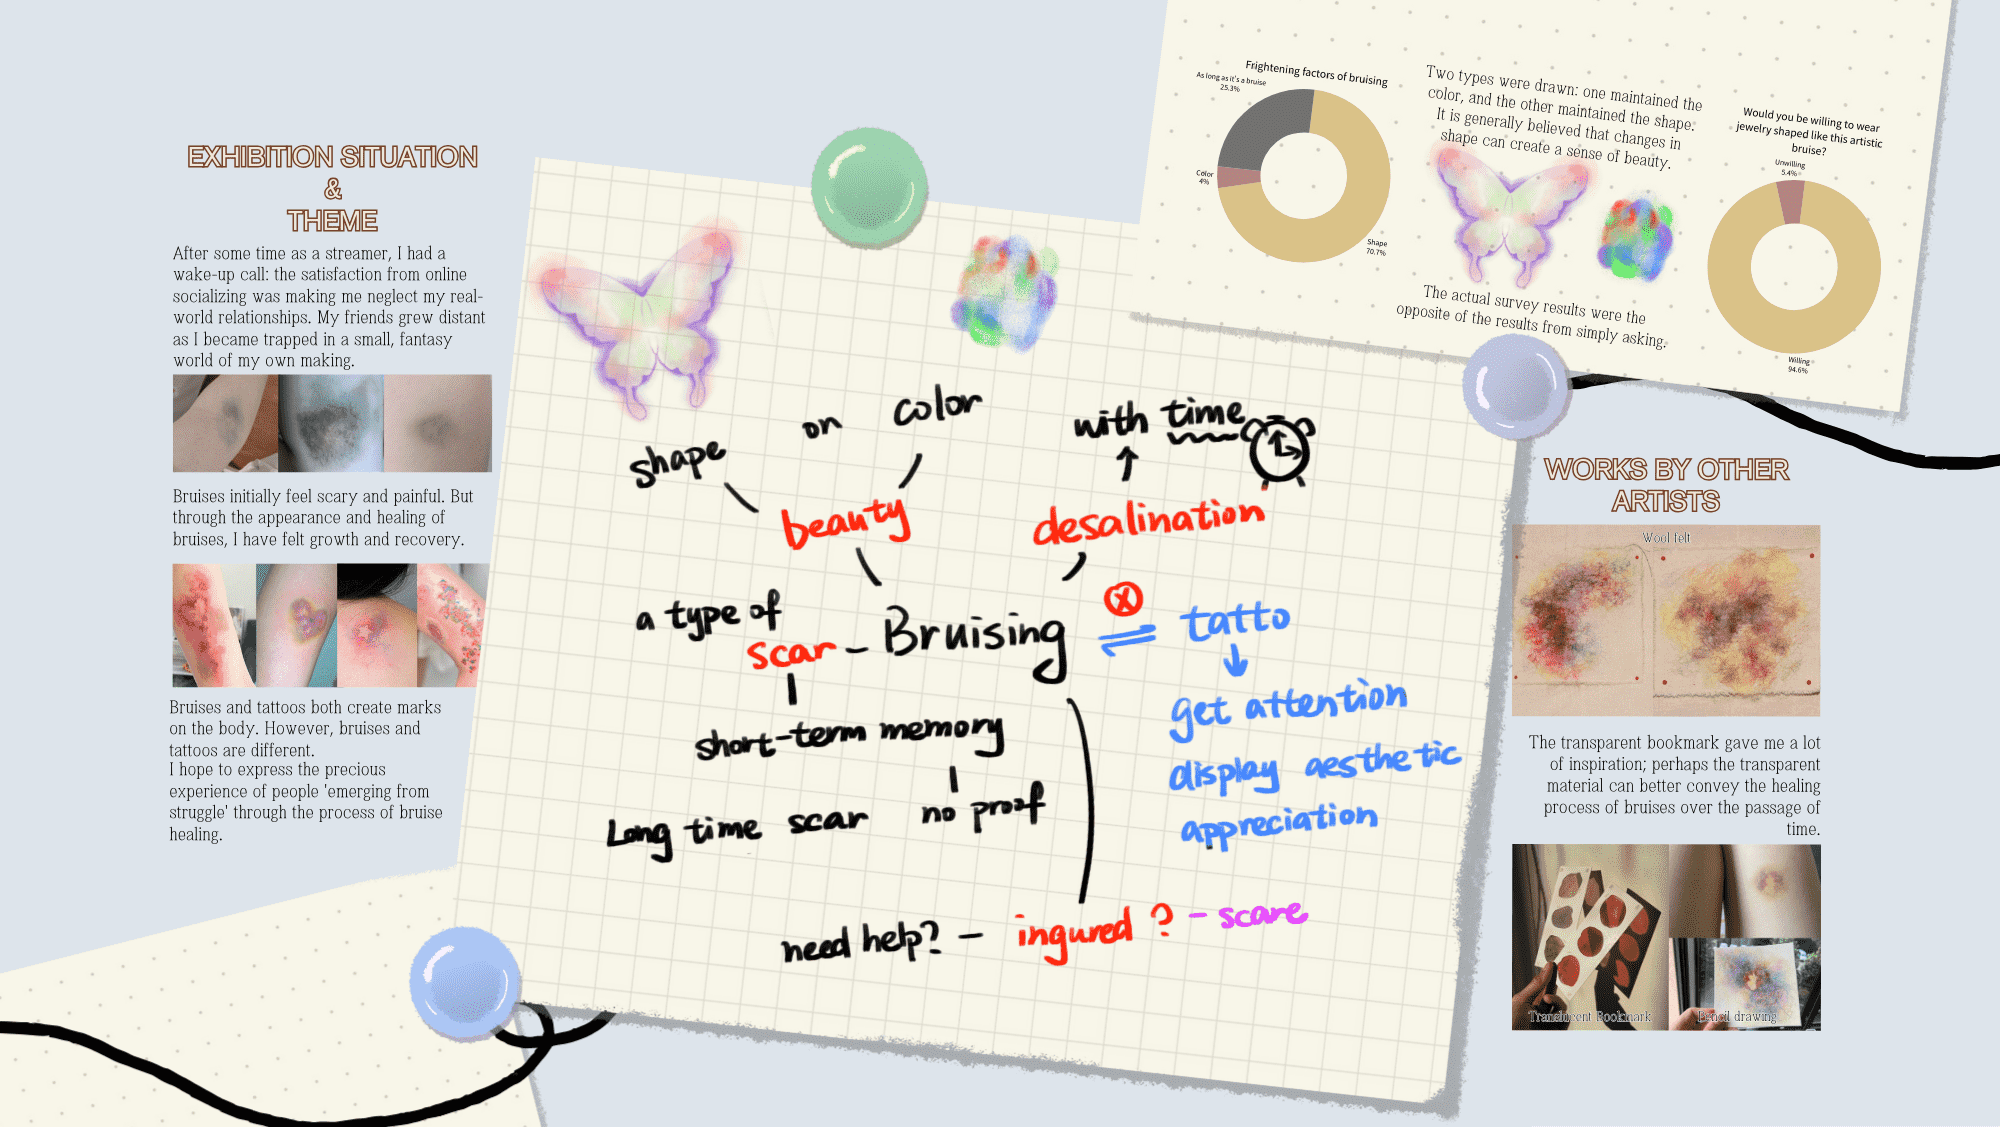 EXHIBITION SITUATION
&
THEME
After some time as a streamer, I had a
wake-up call: the satisfaction from online
socializing was making me neglect my real-
world relationships. My friends grew distant
as I became trapped in a small, fantasy
world of my own making.
Bruises initially feel scary and painful. But
through the appearance and healing of
bruises, I have felt growth and recovery.
Bruises and tattoos both create marks
on the body. However, bruises and
tattoos are different.
I hope to express the precious
experience of people 'emerging from
struggle' through the process of bruise
healing.
shape
on
color
with time
beauty
desalination
a type of
scar - Bruising
tatto
short-term memory
get attention
no proof
display aesthetic
Long time scar
appreciation
need help? - ingured ? - scare
Frightening factors of bruising
As long as it's a bruise
25.3%
Color
4%
Shape
70.7%
Two types were drawn: one maintained the
color, and the other maintained the shape.
It is generally believed that changes in
shape can create a sense of beauty.
The actual survey results were the
opposite of the results from simply asking.
Would you be willing to wear
jewelry shaped like this artistic
bruise?
Unwilling
5.4%
Willing
94.6%
WORKS BY OTHER
ARTISTS
Wool felt
The transparent bookmark gave me a lot
of inspiration; perhaps the transparent
material can better convey the healing
process of bruises over the passage of
time.
Translucent Bookmark
Pencil drawing